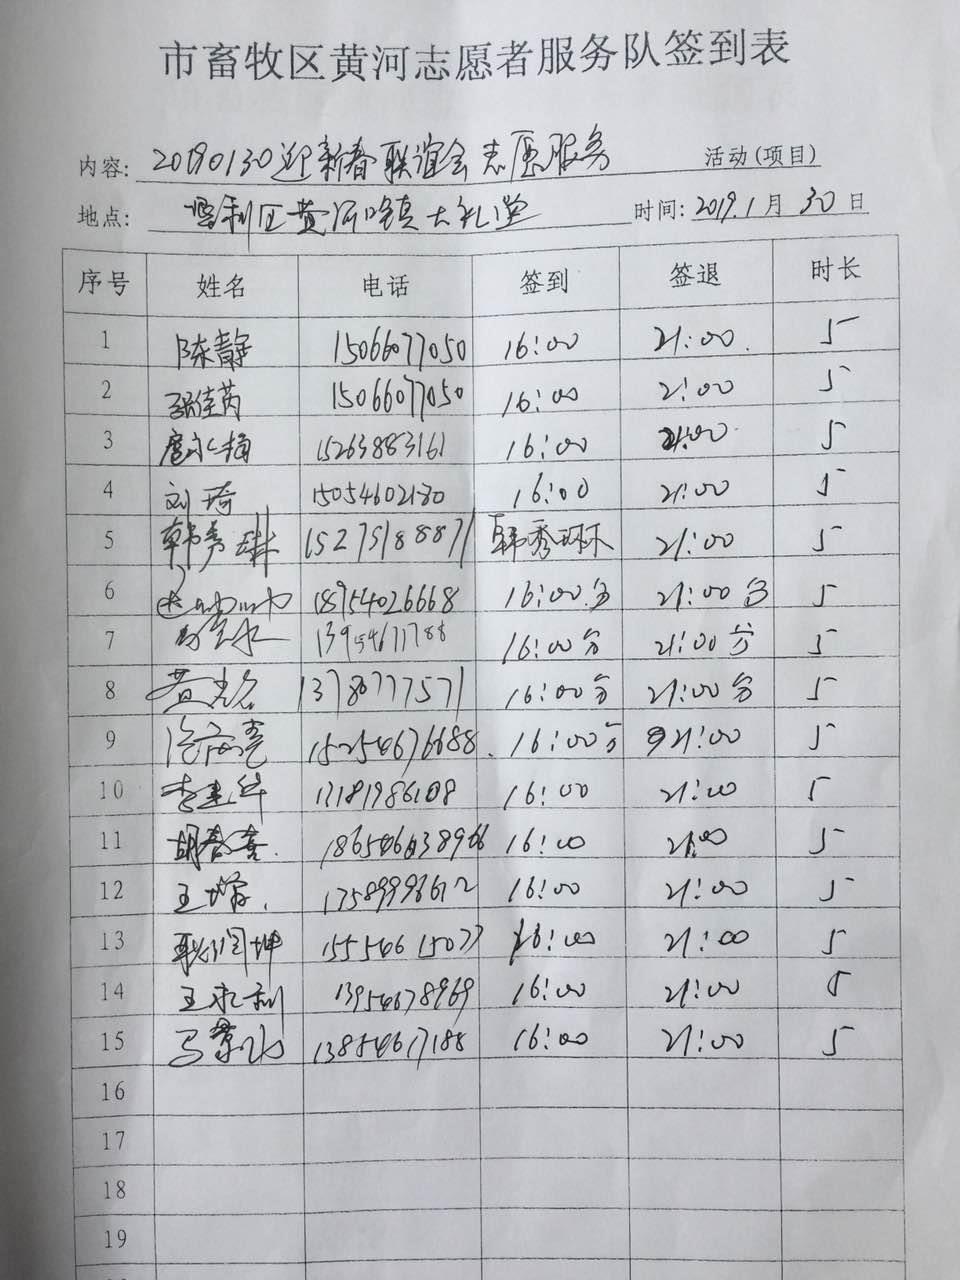 市畜牧区黄河志愿者服务队签到表
内容: 20190130迎新春联谊会志愿服务 活动(项目)
地点: 垦利区黄河口镇大礼堂 时间: 2019.1月30日
序号 姓名 电话 签到 签退 时长
1 陈静 15066077050 16:00 21:00. 5
2 张佳芮 15066077050 16:00 21:00 5
3 15263883161 16:00 21:00 5
4 刘琦 15054602180 16:00 21:00 5
5 韩秀琳 15275188871 韩秀环 21:00 5
6 18954026668 16:00分 21:00分 5
7 13954671788 16:00分 21:00分 5
8 13780777571 16:00分 21:00分 5
9 15254676688 16:00分 21:00 5
10 李建华 16:00 21:00 5
11 胡春喜 16:00 21:00 5
12 16:00 21:00 5
13 耿润坤 16:00 21:00 5
14 王永利 13954678969 16:00 21:00 5
15 13854617188 16:00 21:00 5
16
17
18
19